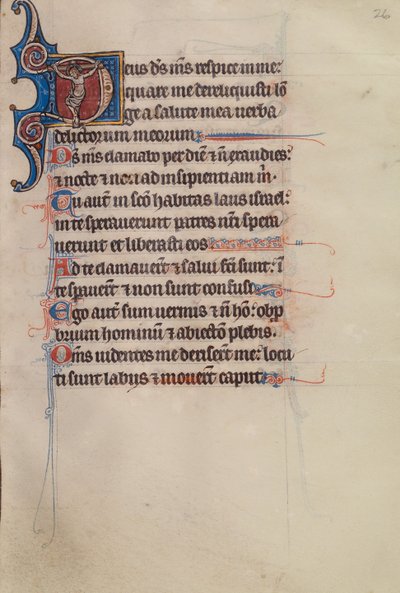 26
Deus ds ms respice in me:
quare me dereliquisti lon
ge a salute mea uerba
delictorum meorum
Ds ms clamabo per diē & n̄ exaudies:
& nocte & non ad insipientiam m̄.
Tu autē in sc̄o habitas laus israel:
in te sperauerunt patres nr̄i spera
uerunt et liberasti eos
Ad te clamauer̄t & salui fc̄i sunt: ī
te sꝑauer̄t & non sunt confusi
Ego aut̄ sum uermis & n̄ ho: obp
brium hominū & abiectio plebis.
Om̄s uidentes me deriser̄t me: locu
ti sunt labijs & mouer̄t caput